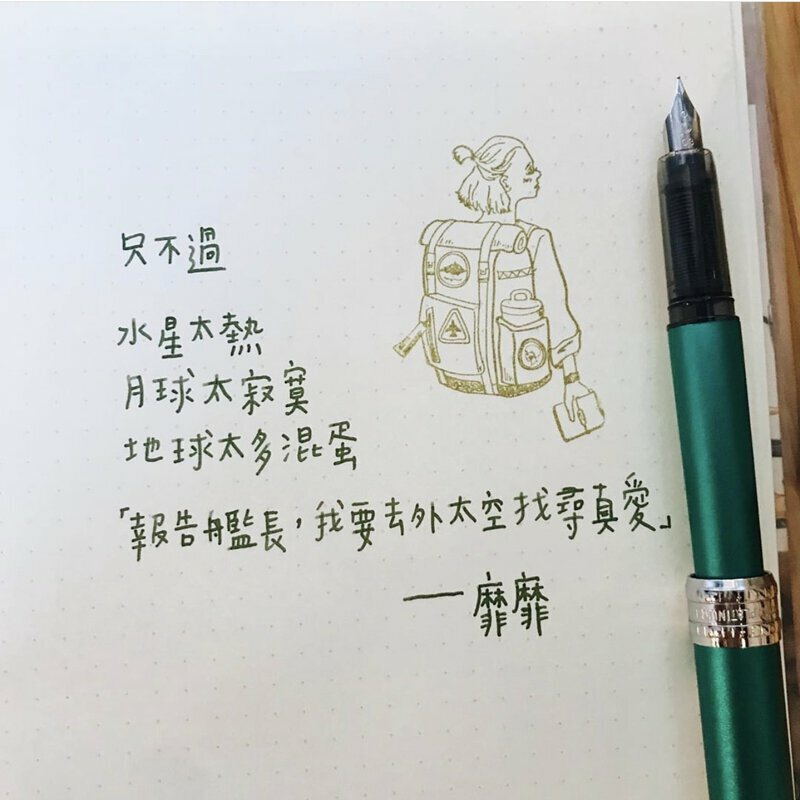 只不過
水星太熱
月球太寂寞
地球太多混蛋
「報告艦長，我要去外太空找尋真愛」
——靡靡
PLATINUM